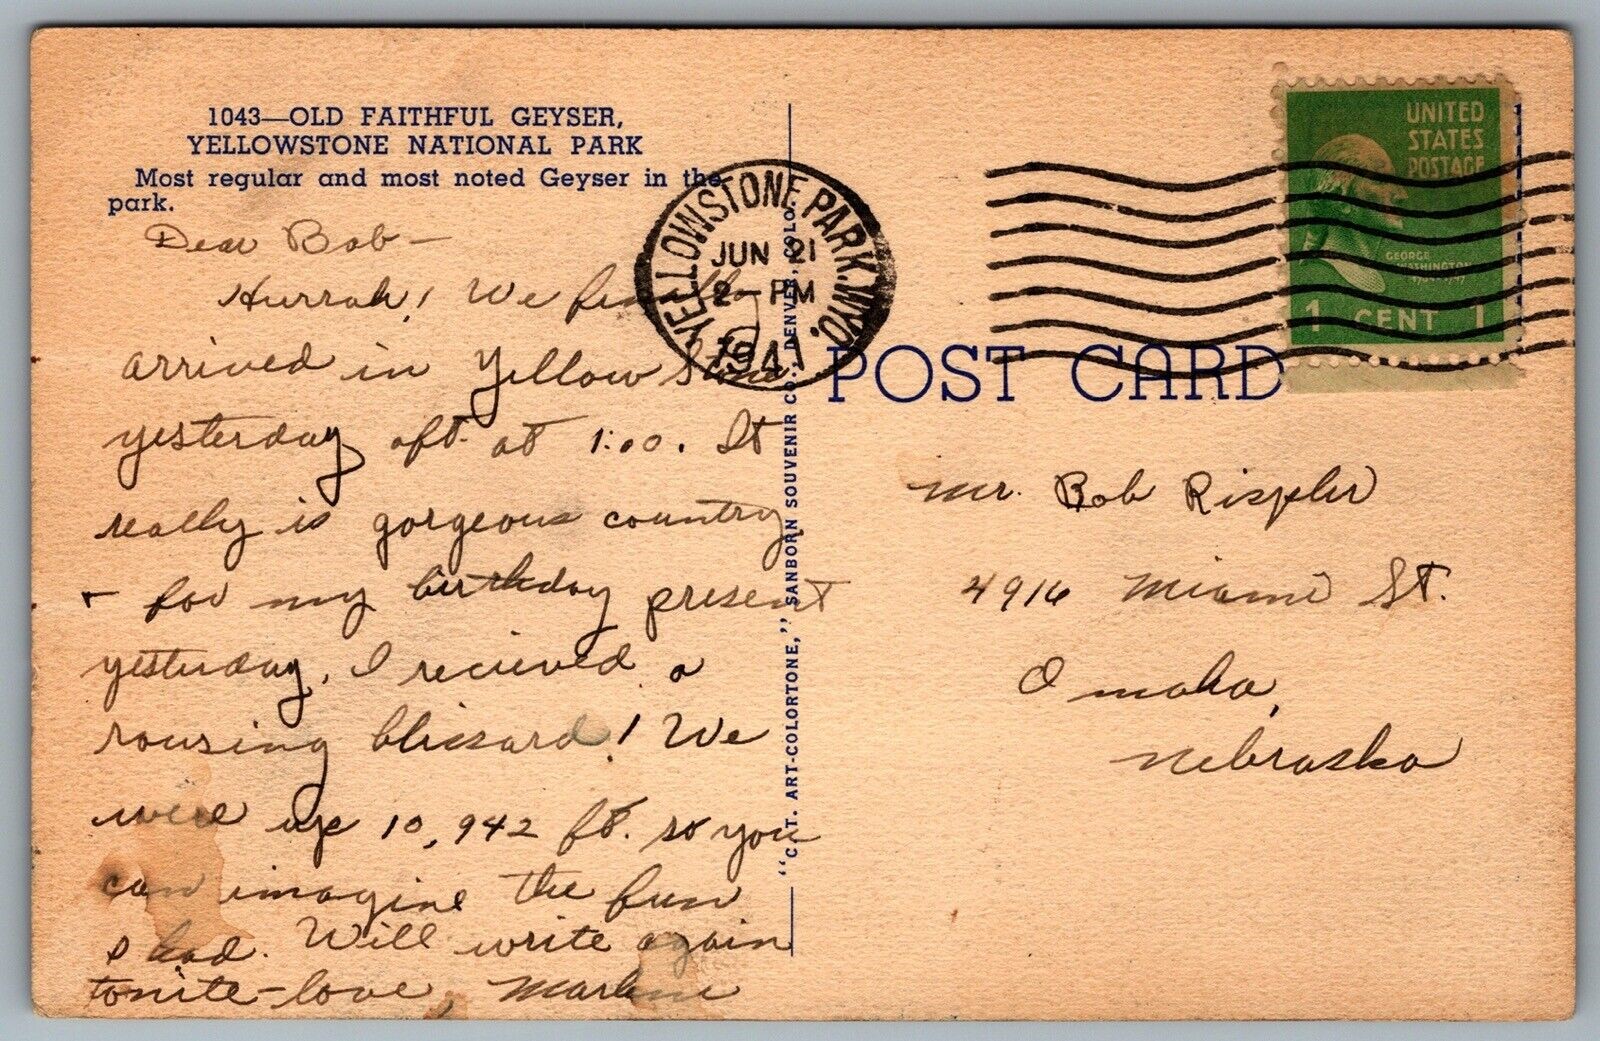 1043—OLD FAITHFUL GEYSER,
YELLOWSTONE NATIONAL PARK
Most regular and most noted Geyser in the
park.
Dear Bob—
Hurrah! We finally
arrived in Yellow Stone
yesterday aft. at 1:00. It
really is gorgeous country
+ for my birthday present
yesterday, I recieved a
rousing blizzard! We
were up 10,942 ft. so you
can imagine the fun
I had. Will write again
tonite—love, Marlene
YELLOWSTONE PARK, WYO.
JUN 21
2 - PM
1941
"C.T. ART-COLORTONE," SANBORN SOUVENIR CO., DENVER, COLO.
POST CARD
UNITED
STATES
POSTAGE
GEORGE
WASHINGTON
1 CENT 1
Mr. Bob Rispler
4916 Miami St.
Omaha,
Nebraska